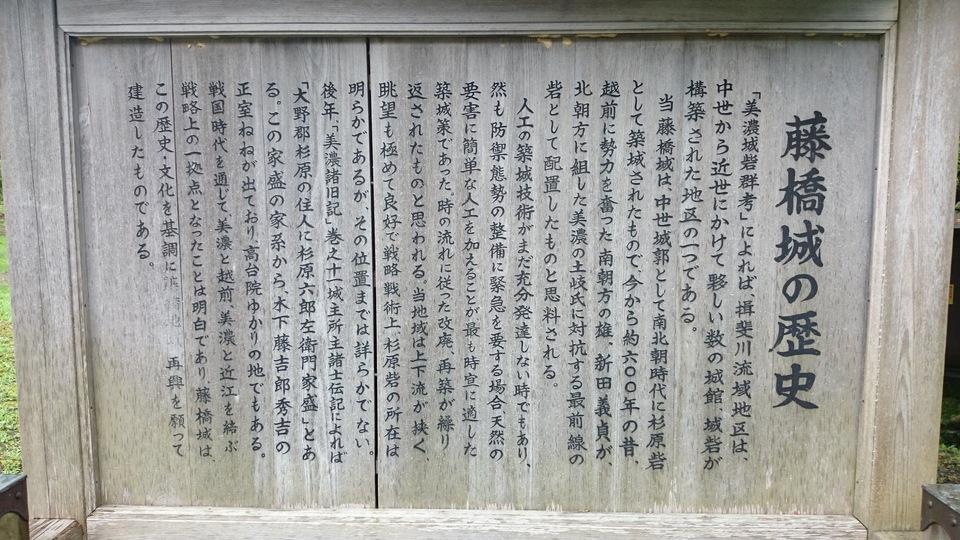 藤橋城の歴史
「美濃城砦群考」によれば、揖斐川流域地区は、
中世から近世にかけて夥しい数の城館、城砦が
構築された地区の一つである。
当藤橋城は、中世城郭として南北朝時代に杉原砦
として築城されたもので、今から約六〇〇年の昔、
越前に勢力を奮った南朝方の雄、新田義貞が、
北朝方に組した美濃の土岐氏に対抗する最前線の
砦として配置したものと思料される。
人工の築城技術がまだ充分発達しない時でもあり、
然も防禦態勢の整備に緊急を要する場合、天然の
要害に簡単な人工を加えることが最も時宜に適した
築城策であった。時の流れに従った改廃、再築が繰り
返されたものと思われる。当地域は上下流が狭く、
眺望も極めて良好で戦略戦術上、杉原砦の所在は
明らかであるが、その位置までは詳らかでない。
後年、「美濃諸旧記」巻之十一城主所主諸士伝記によれば
「大野郡杉原の住人に杉原六郎左衛門家盛」とあ
る。この家盛の家系から、木下藤吉郎秀吉の
正室ねねが出ており、高台院ゆかりの地でもある。
戦国時代を通じて、美濃と越前、美濃と近江を結ぶ
戦略上の一拠点となったことは明白であり藤橋城は、
この歴史・文化を基調に 再興を願って
建造したものである。